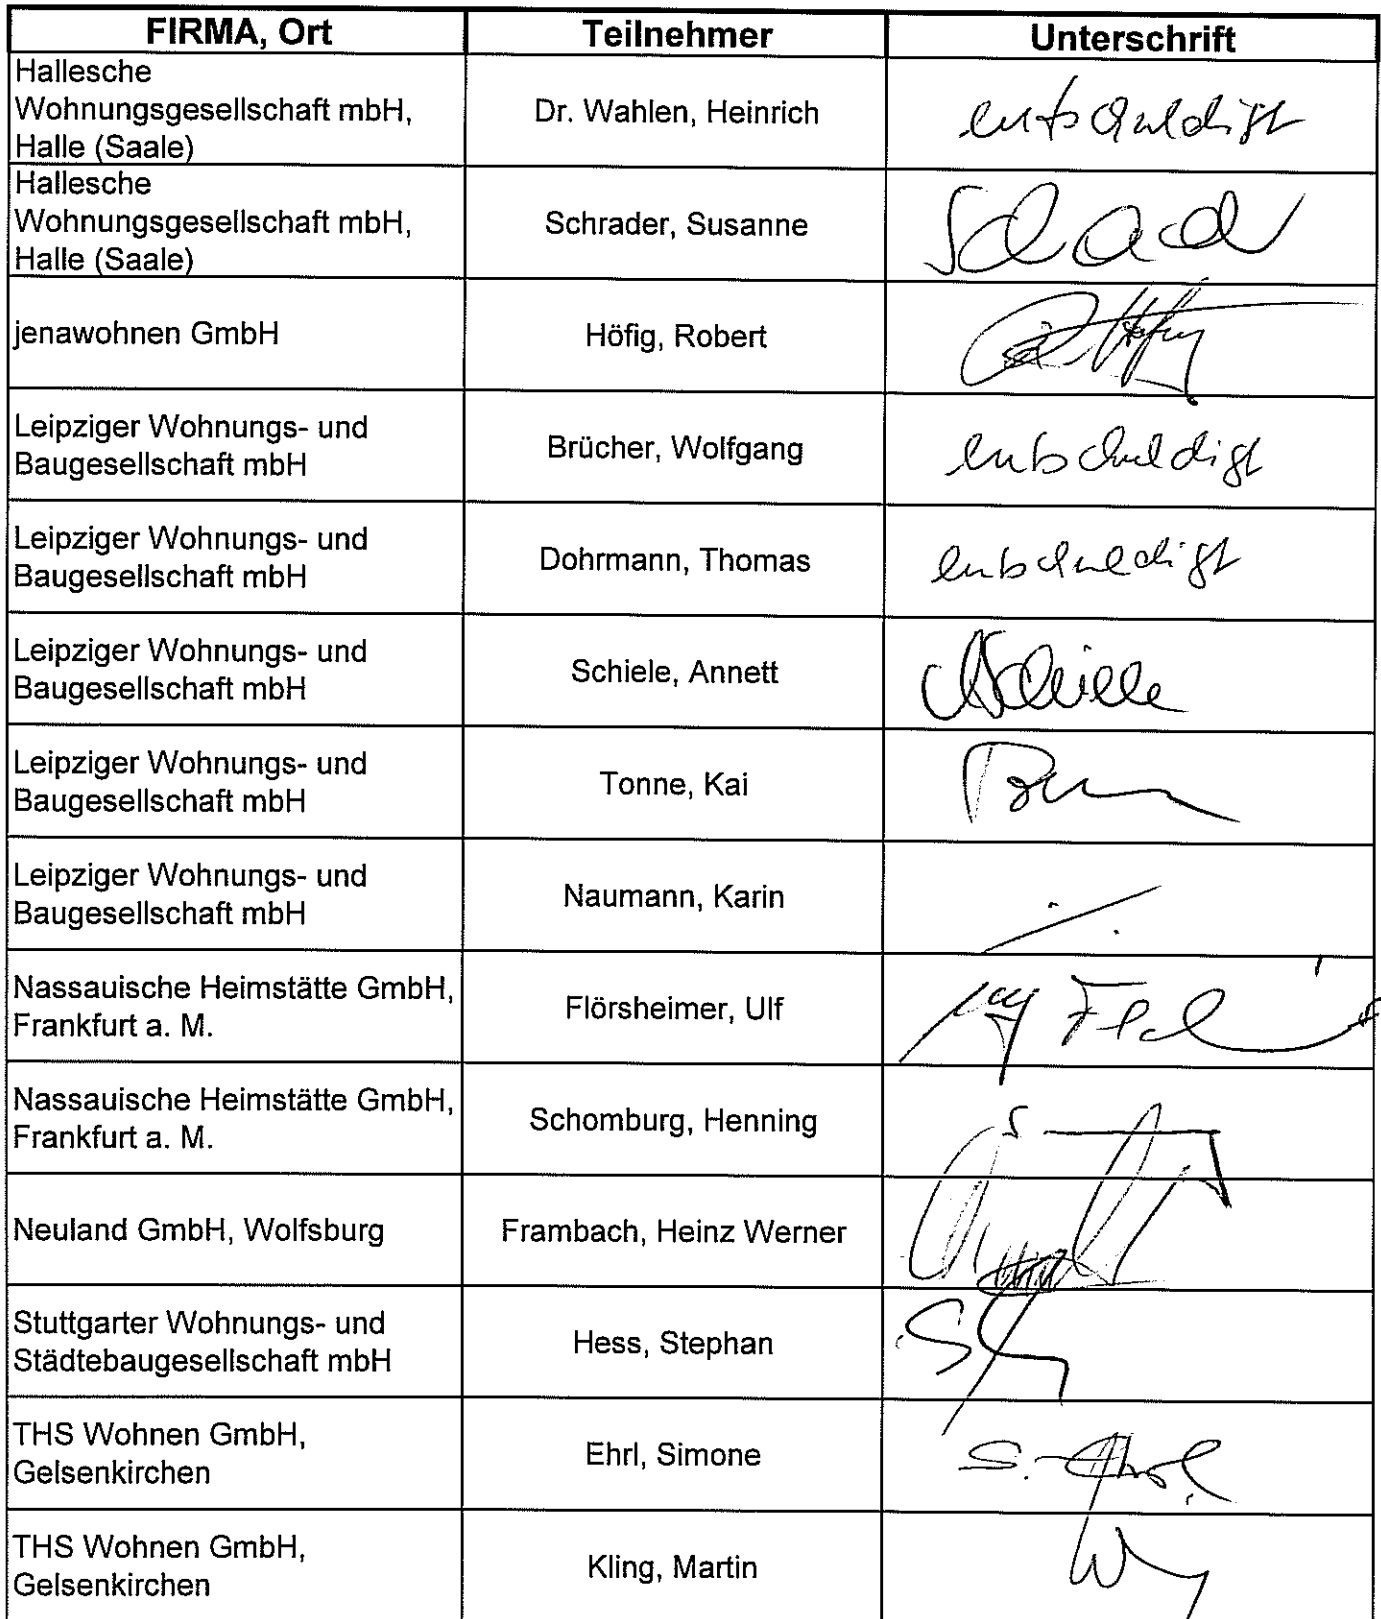 FIRMA, Ort Teilnehmer Unterschrift
Hallesche
Wohnungsgesellschaft mbH,
Halle (Saale)
Dr. Wahlen, Heinrich
entschuldigt
Hallesche
Wohnungsgesellschaft mbH,
Halle (Saale)
Schrader, Susanne
jenawohnen GmbH
Höfig, Robert
Leipziger Wohnungs- und
Baugesellschaft mbH
Brücher, Wolfgang
entschuldigt
Leipziger Wohnungs- und
Baugesellschaft mbH
Dohrmann, Thomas
entschuldigt
Leipziger Wohnungs- und
Baugesellschaft mbH
Schiele, Annett
Leipziger Wohnungs- und
Baugesellschaft mbH
Tonne, Kai
Leipziger Wohnungs- und
Baugesellschaft mbH
Naumann, Karin
Nassauische Heimstätte GmbH,
Frankfurt a. M.
Flörsheimer, Ulf
Nassauische Heimstätte GmbH,
Frankfurt a. M.
Schomburg, Henning
Neuland GmbH, Wolfsburg
Frambach, Heinz Werner
Stuttgarter Wohnungs- und
Städtebaugesellschaft mbH
Hess, Stephan
THS Wohnen GmbH,
Gelsenkirchen
Ehrl, Simone
THS Wohnen GmbH,
Gelsenkirchen
Kling, Martin